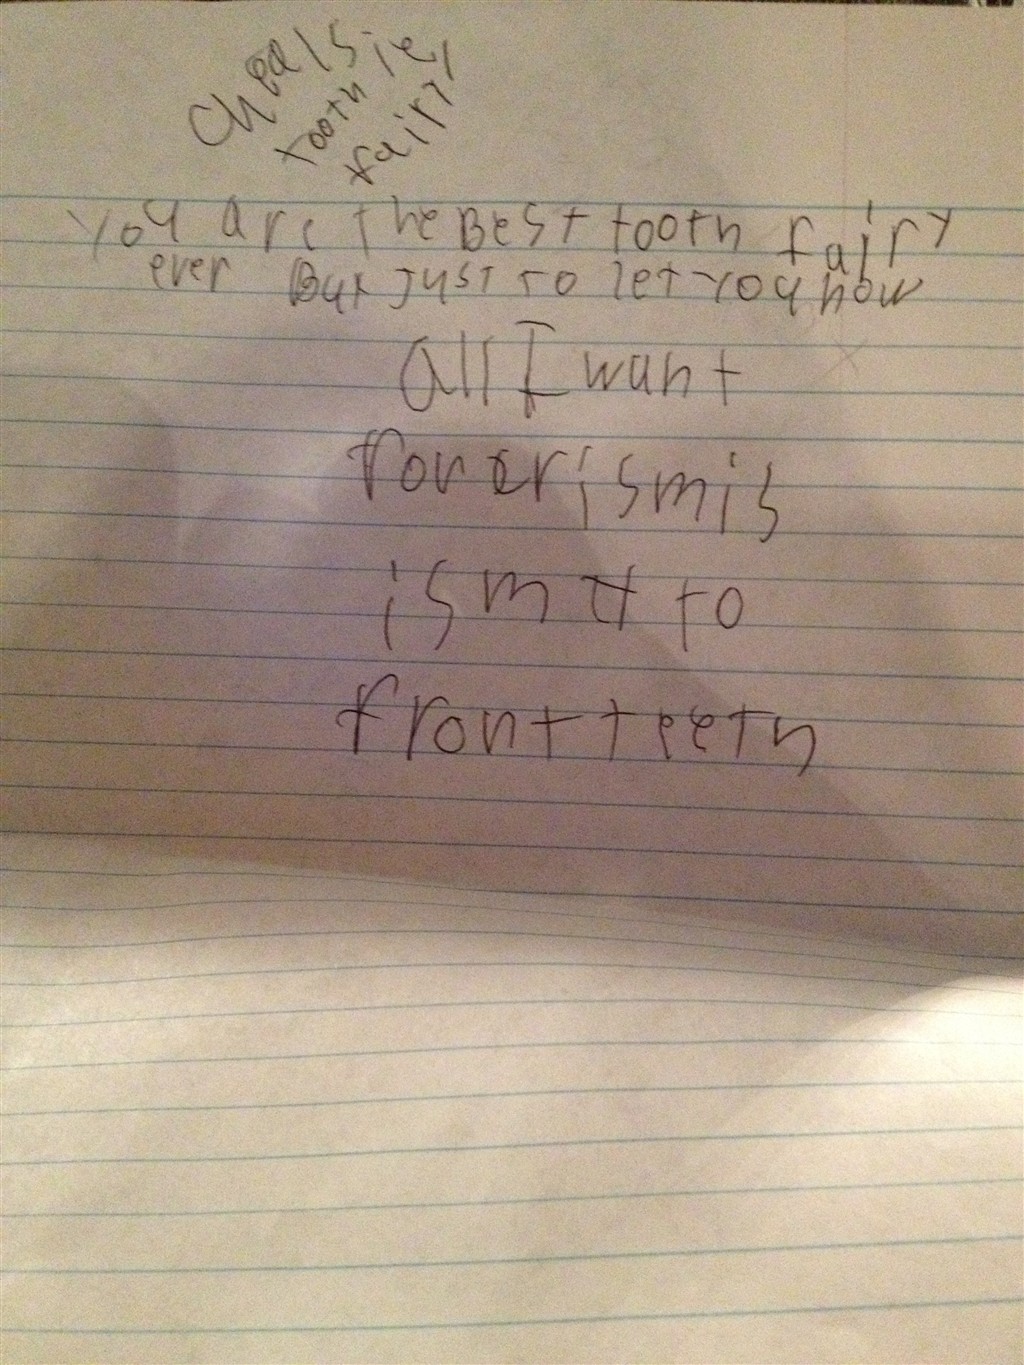 Chealsie
tooth
fairy
You are the Best tooth fairy
ever But just to let you now
all I want
for crismis
is my to
front teeth